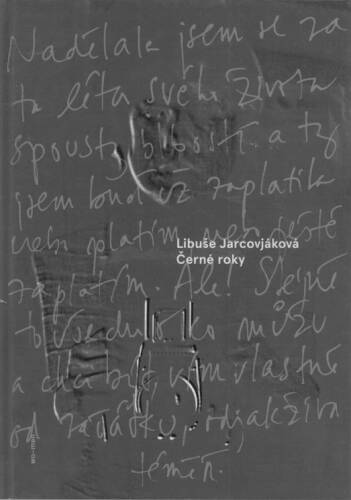 Nadělala jsem se za
ta léta svého života
spousty blbostí a ty
jsem buď už zaplatila
nebo platím nebo ještě
zaplatím. Ale! Stejně
to všechno
a chtěla vlastně
od začátku, odjakživa
téměř.
Libuše Jarcovjáková
Černé roky
wo-men